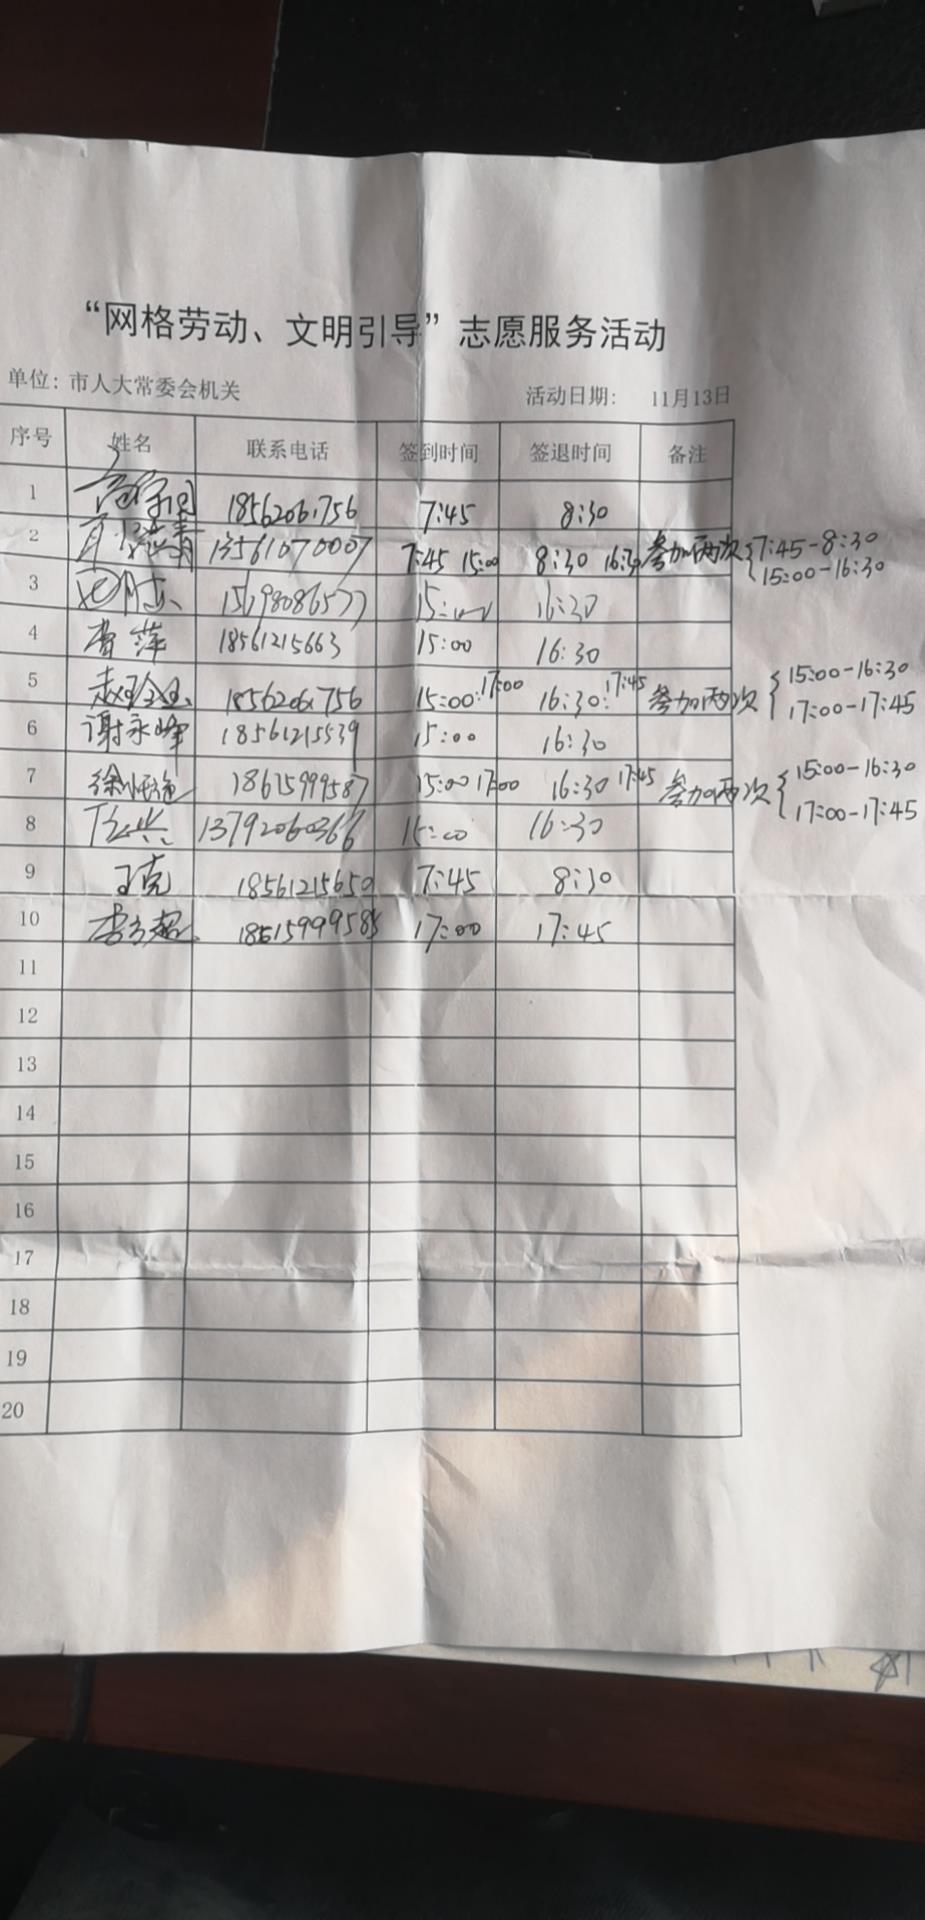 “网格劳动、文明引导”志愿服务活动
单位：市人大常委会机关 活动日期： 11月13日
序号 姓名 联系电话 签到时间 签退时间 备注
1 18562061756 7:45 8:30
2 13561070007 7:45 15:00 8:30 16:30 参加两次 {7:45-8:30
15:00-16:30
3 15698086577 15:00 16:30
4 曹萍 18561215663 15:00 16:30
5 18562061756 15:00 17:00 16:30 17:45 参加两次 {15:00-16:30
17:00-17:45
6 谢永峰 18561215539 15:00 16:30
7 18615999587 15:00 17:00 16:30 17:45 参加两次 {15:00-16:30
17:00-17:45
8 13792060366 15:00 16:30
9 王克 18561215650 7:45 8:30
10 17:00 17:45
11
12
13
14
15
16
17
18
19
20